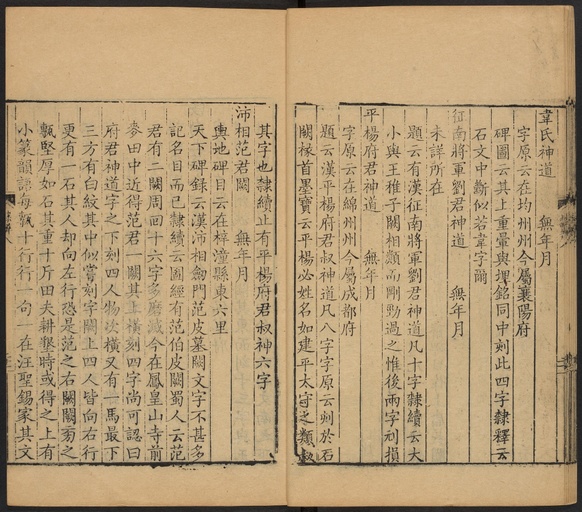 韋氏神道　無年月
字原云在均州州今屬襄陽府
碑圖云其上重暈與碑銘同中刻此四字隸釋云
石文中斷似若韋字爾
征南將軍劉君神道　無年月
未詳所在
題云有漢征南將軍劉君神道凡十字隸續云大
小與王稚子闕相類而剛勁過之惟後兩字刓損
平楊府君神道　無年月
字原云在綿州州今屬成都府
題云漢平楊府君叔神道凡八字字原云刻於石
闕椽首墨寶云平楊必姓名如建平太守之類
其字也隸續止有平楊府君叔神六字
沛相范君闕　無年月
輿地碑目云在梓潼縣東六里
天下碑錄云漢沛相劒門范皮墓闕文字不甚多
記名目而已隸續云圖經有范伯皮闕蜀人云范
君有二闕周回十六字多磨滅今在鳳皇山寺前
麥田中近得范君一闕其上橫刻四字尚可認曰
府君神道字之下刻四人物次橫又有一馬最下
三方有臼紋其中似嘗刻字闕上四人皆向右行
更有一石其人却向左行恐是范之右闕闕旁之
甎堅厚如石其重十斤田夫耕墾時或得之上有
小篆韻語每甎十行行一句一在汪聖錫家其文